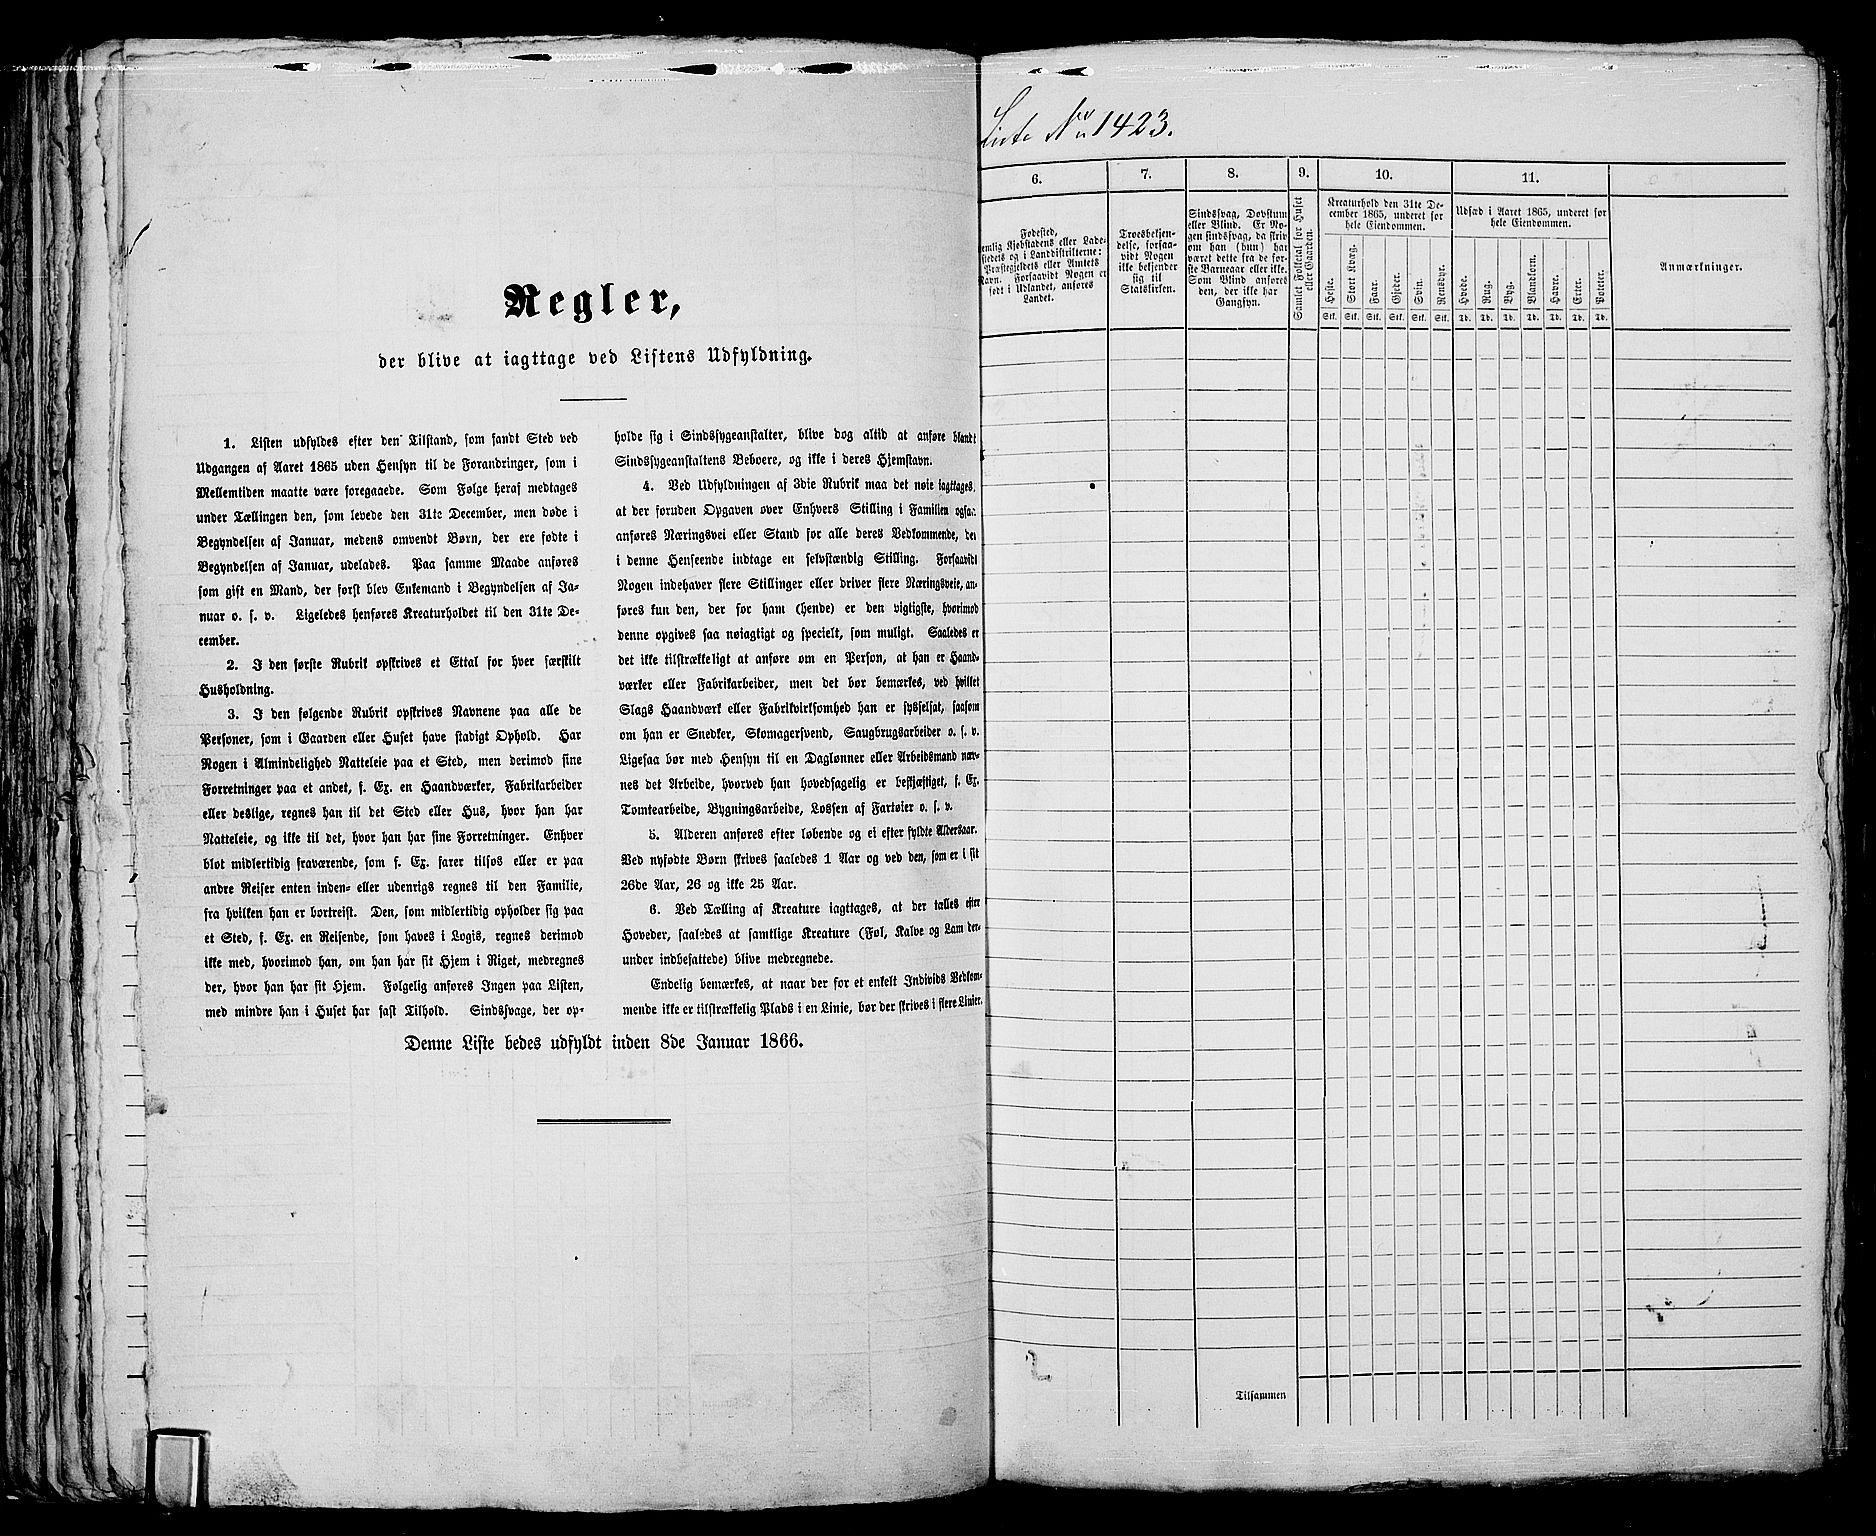 Regler,
der blive at iagttage ved Listens Udfyldning.
1. Listen udfyldes efter den Tilstand, som fandt Sted ved
Udgangen af Aaret 1865 uden Hensyn til de Forandringer, som i
Mellemtiden maatte være foregaaede. Som Følge heraf medtages
under Tællingen den, som levede den 31te December, men døde i
Begyndelsen af Januar, medens omvendt Børn, der ere fødte i
Begyndelsen af Januar, udelades. Paa samme Maade anføres
som gift en Mand, der først blev Enkemand i Begyndelsen af Ja-
nuar o. s. v. Ligeledes henføres Kreaturholdet til den 31te De-
cember.
2. I den første Rubrik opskrives et Ettal for hver særskilt
Husholdning.
3. I den følgende Rubrik opskrives Navnene paa alle de
Personer, som i Gaarden eller Huset have stadigt Ophold. Har
Nogen i Almindelighed Natteleie paa et Sted, men derimod sine
Forretninger paa et andet, f. Ex. en Haandværker, Fabrikarbeider
eller deslige, regnes han til det Sted eller Hus, hvor han har
Natteleie, og ikke til det, hvor han har sine Forretninger. Enhver
blot midlertidig fraværende, som f. Ex. farer tilsøs eller er paa
andre Reiser enten inden- eller udenrigs regnes til den Familie,
fra hvilken han er bortreist. Den, som midlertidig opholder sig paa
et Sted, f. Ex. en Reisende, som haves i Logis, regnes derimod
ikke med, hvorimod han, om han har sit Hjem i Riget, medregnes
der, hvor han har sit Hjem. Følgelig anføres Ingen paa Listen,
med mindre han i Huset har fast Tilhold. Sindssvage, der op-
holde sig i Sindssygeanstalter, blive dog altid at anføre blandt
Sindssygeanstaltens Beboere, og ikke i deres Hjemstavn.
4. Ved Udfyldningen af 3die Rubrik maa det nøie iagttages,
at der foruden Opgaven over Enhvers Stilling i Familien ogsaa
anføres Næringsvei eller Stand for alle deres Vedkommende, der
i denne Henseende indtage en selvstændig Stilling. Forsaavidt
Nogen indehaver flere Stillinger eller driver flere Næringsveie, an-
føres kun den, der for ham (hende) er den vigtigste, hvorimod
denne opgives saa nøiagtigt og specielt, som muligt. Saaledes er
det ikke tilstrækkeligt at anføre om en Person, at han er Haand-
værker eller Fabrikarbeider, men det bør bemærkes, ved hvilket
Slags Haandværk eller Fabrikvirksomhed han er sysselsat, saasom
om han er Snedker, Skomagersvend, Saugbrugsarbeider o. s. v.
Ligesaa bør med Hensyn til en Daglønner eller Arbeidsmand næv-
nes det Arbeide, hvorved han hovedsagelig er beskjæftiget, f. Ex.
Tomtearbeide, Bygningsarbeide, Lossen af Fartøier o. s. v.
5. Alderen anføres efter løbende og ei efter fyldte Aldersaar.
Ved nyfødte Børn skrives saaledes 1 Aar og ved den, som er i sit
26de Aar, 26 og ikke 25 Aar.
6. Ved Tælling af Kreature iagttages, at der tælles efter
Hoveder, saaledes at samtlige Kreature (Føl, Kalve og Lam der-
under indbefattede) blive medregnede.
Endelig bemærkes, at naar der for et enkelt Individs Vedkom-
mende ikke er tilstrækkelig Plads i en Linie, bør der skrives i flere Linier.
Denne Liste bedes udfyldt inden 8de Januar 1866.
Liste No 1423.
6.
7.
8.
9.
10.
11.
Fødested,
emlig Kjøbstadens eller Lade-
stedets og i Landdistrikterne:
Præstegjeldets eller Amtets
Navn. Forsaavidt Nogen er
født i Udlandet, anføres
Landet.
Troesbekjen-
delse, forsaa-
vidt Nogen
ikke bekjender
sig til
Statskirken.
Sindssvag, Døvstum
eller Blind. Er No-
gen sindssvag, da skriv
om han (hun) har
været dette fra de før-
ste Barneaar eller ikke.
Som Blind anføres
den, der ikke har
Gangsyn.
Samlet Folketal for Huset
eller Gaarden.
Kreaturhold den 31te De-
cember 1865, underet for
hele Eiendommen.
Heste.
Stort Kvæg.
Faar.
Gjeder.
Svin.
Rensdyr.
Stk.
Stk.
Stk.
Stk.
Stk.
Stk.
Udsæd i Aaret 1865, underet for
hele Eiendommen.
Hvede.
Rug.
Byg.
Blandkorn.
Havre.
Erter.
Poteter.
Td.
Td.
Td.
Td.
Td.
Td.
Td.
Anmærkninger.
Tilsammen